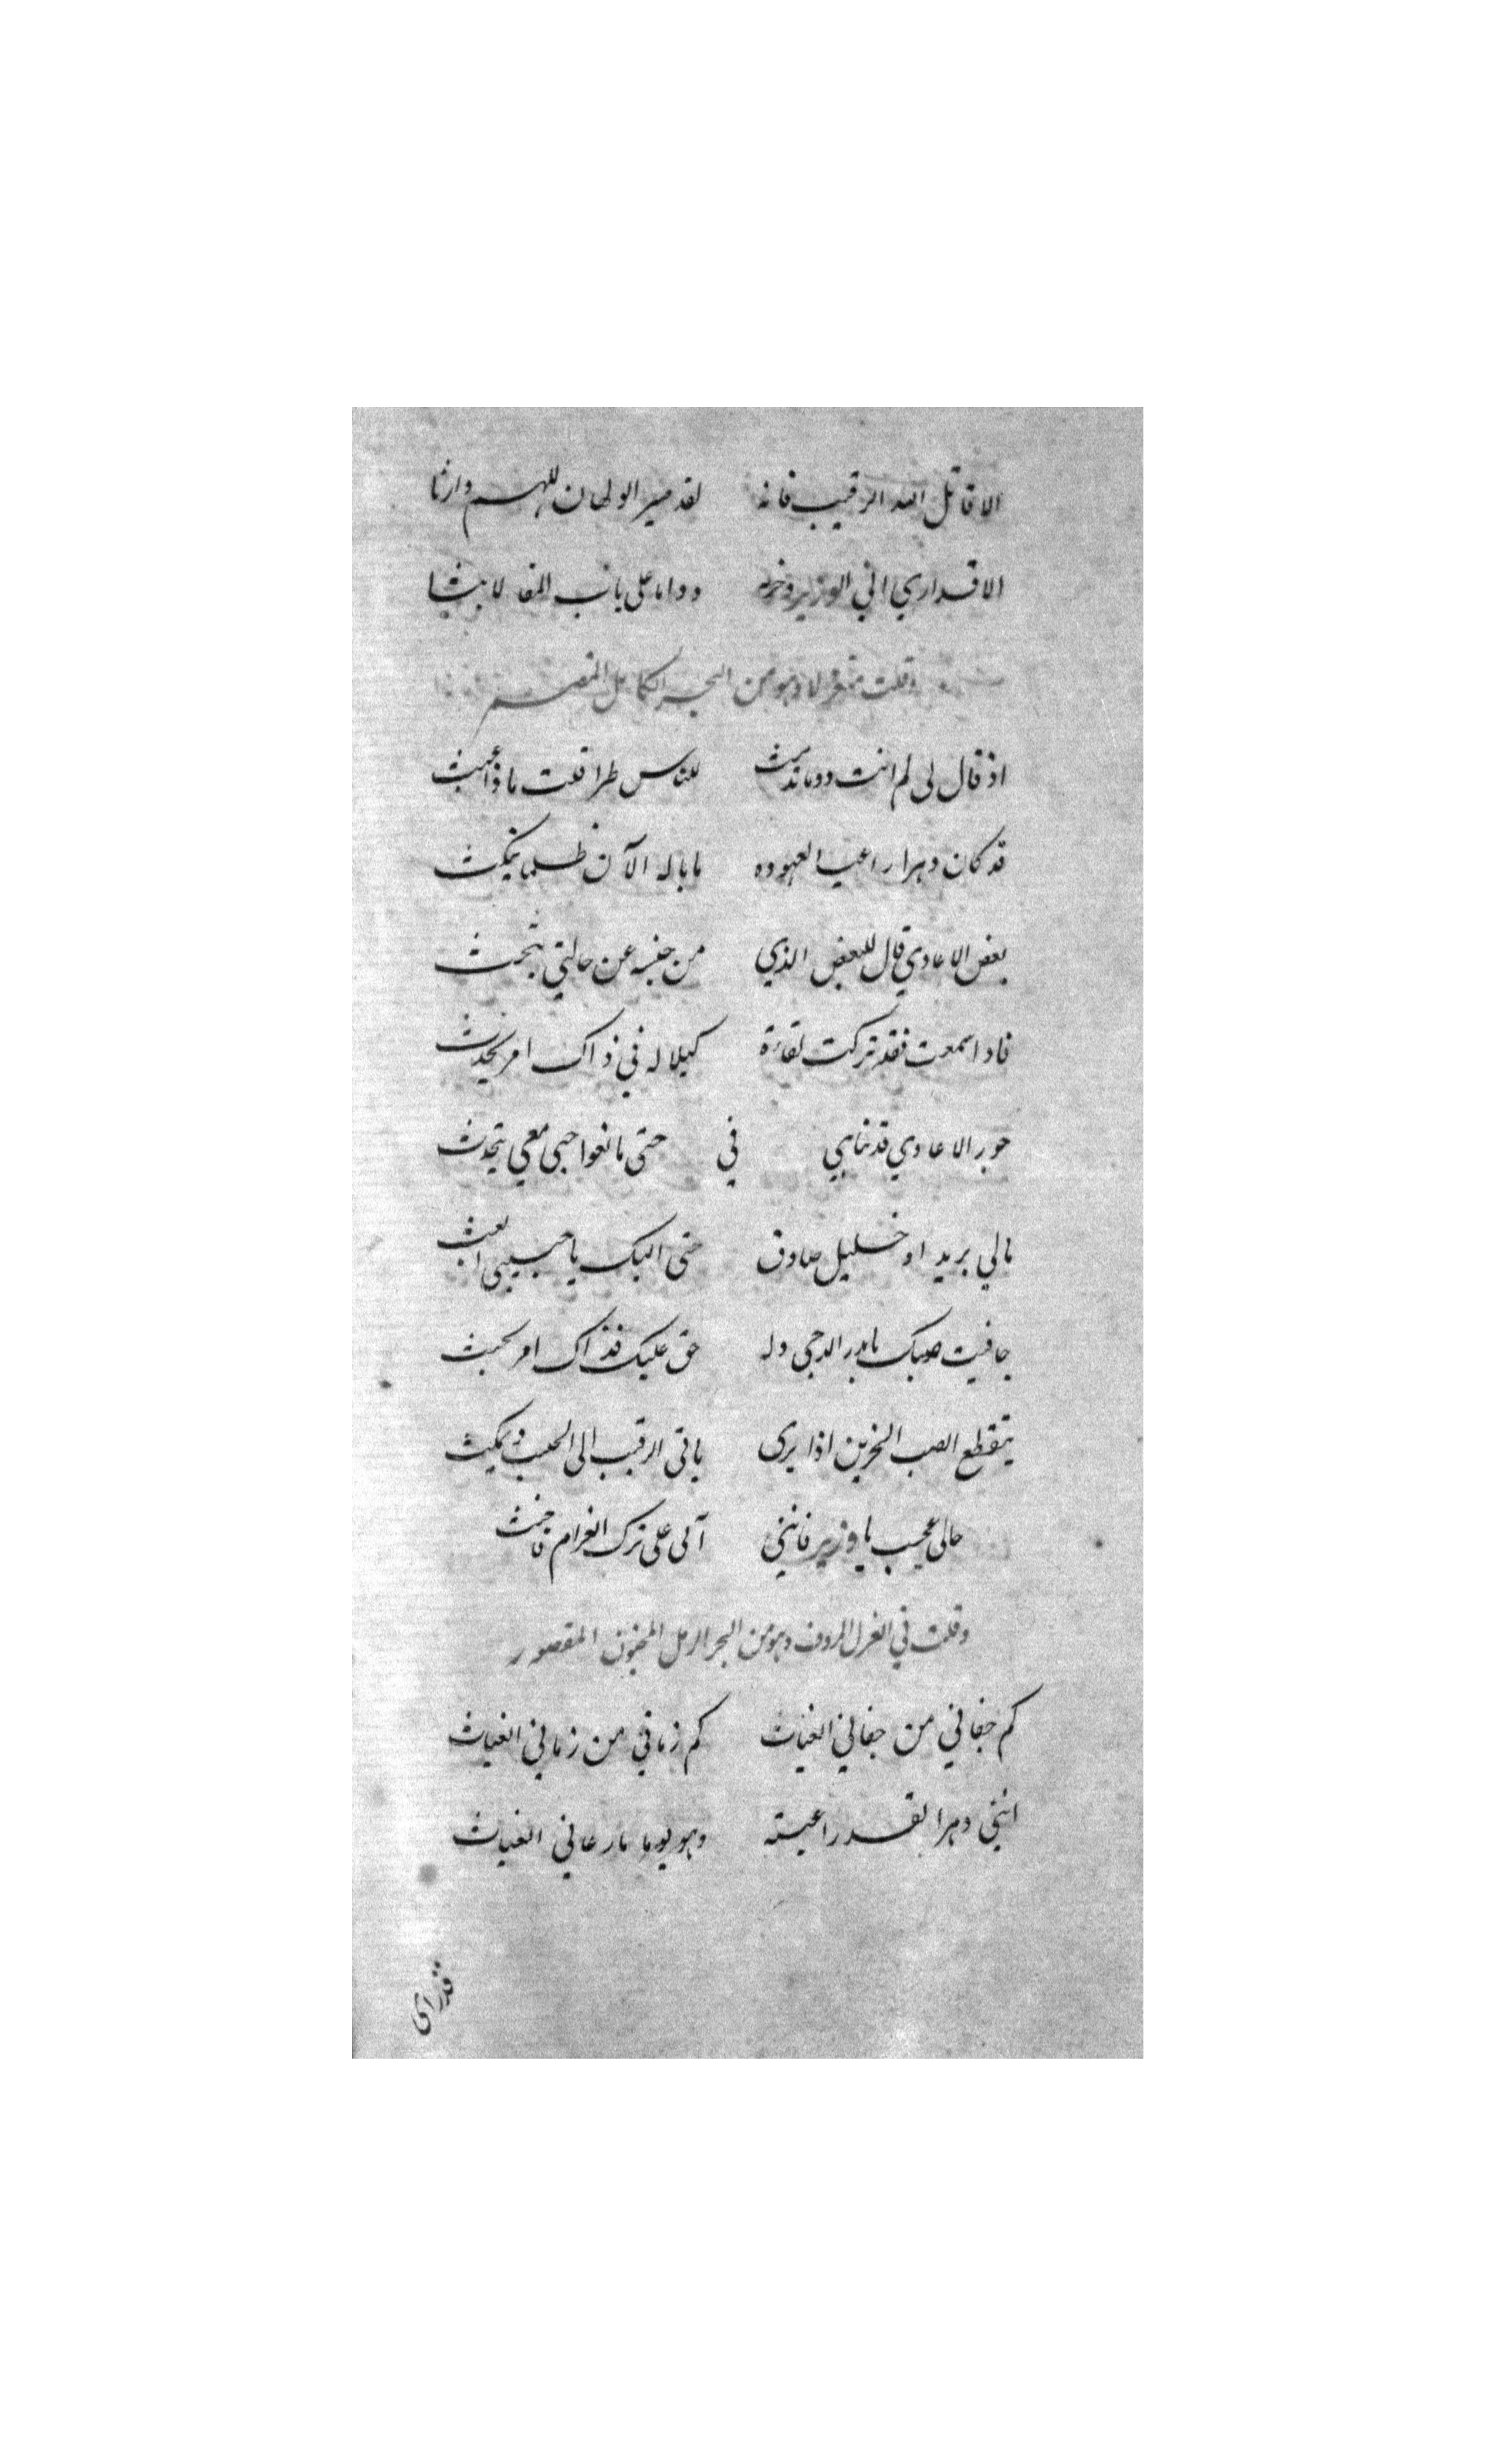 الا قاتل الله الرقيب فانه لقد صير الولهان للهم وارثا
الا قد اري اني الوزير وخره دواما على باب المفا لابثا
وقلت متغزلا وهو من البحر الكامل المقصم
اذ قال لي لم انت دوما تدمث للناس طرا قلت ماذا عبث
قد كان دهرا راعيا لعهوده ما باله الآن ظلما ينكث
بعض الاعادي قال للبعض الذي من جنسه عن حالتي يبحث
فاذا سمعت فقد تركت لقاءة كيلا له في ذاك امر يحدث
جور الاعادي قد تناهى في حتى مانعوا حبي معي يتحدث
مالي بريد او خليل صادق حتى اليك يا حبيبي ابعث
جافيت صبك يا بدر الدجى وله حق عليك فذاك امر يخبث
يتقطع الصب الحزين اذا يرى ياتي الرقيب الى الحبيب ويمكث
حالي عجيب يا وزير فانني آلى على ترك الغرام فاحنث
وقلت في الغزل المردوف وهو من البحر الرمل المخبون المقصور
كم جفاني من جفاني الغياث كم زماني من زماني الغياث
انني دهرا لقد راعيته وهو يوما ما رعاني الغياث